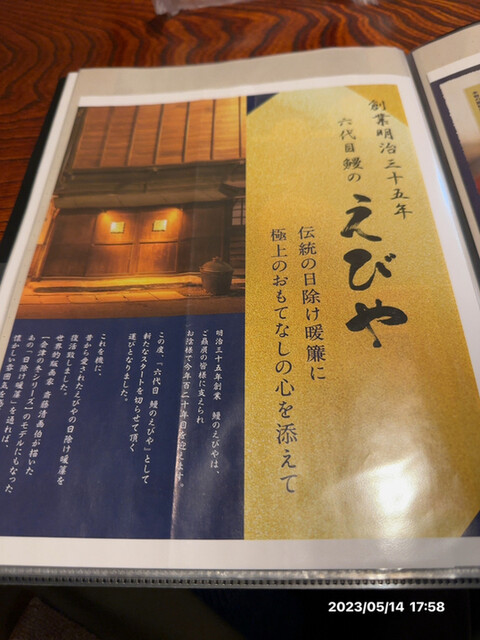 創業明治三十五年
六代目鰻の
えびや
伝統の日除け暖簾に
極上のおもてなしの心を添えて
明治三十五年創業 鰻のえびやは、
ご贔屓の皆様に支えられ
お陰様で今年百二十年目を迎えます。
この度、「六代目 鰻のえびや」として
新たなスタートを切らせて頂く
運びとなりました。
これを機に、
昔から愛されたえびやの日除け暖簾を
復活致しました。
世界的版画家 齋藤清画伯が描いた
「会津の冬シリーズ」のモデルにもなった
あの「日除け暖簾」を通れば、
懐かしい雰囲気を
2023/05/14 17:58